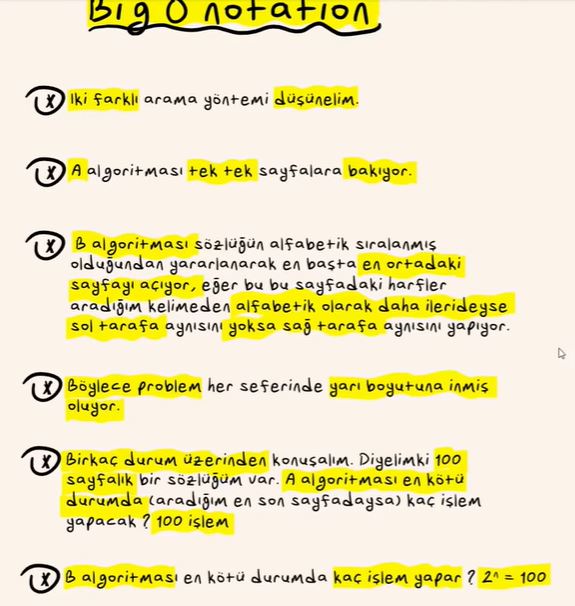 Big O notation
İki farklı arama yöntemi düşünelim.
A algoritması tek tek sayfalara bakıyor.
B algoritması sözlüğün alfabetik sıralanmış
olduğundan yararlanarak en başta en ortadaki
sayfayı açıyor, eğer bu bu sayfadaki harfler
aradığım kelimeden alfabetik olarak daha ilerideyse
sol tarafa aynısını yoksa sağ tarafa aynısını yapıyor.
Böylece problem her seferinde yarı boyutuna inmiş
oluyor.
Birkaç durum üzerinden konuşalım. Diyelimki 100
sayfalık bir sözlüğüm var. A algoritması en kötü
durumda (aradığım en son sayfadaysa) kaç işlem
yapacak ? 100 işlem
B algoritması en kötü durumda kaç işlem yapar ? 2^ = 100